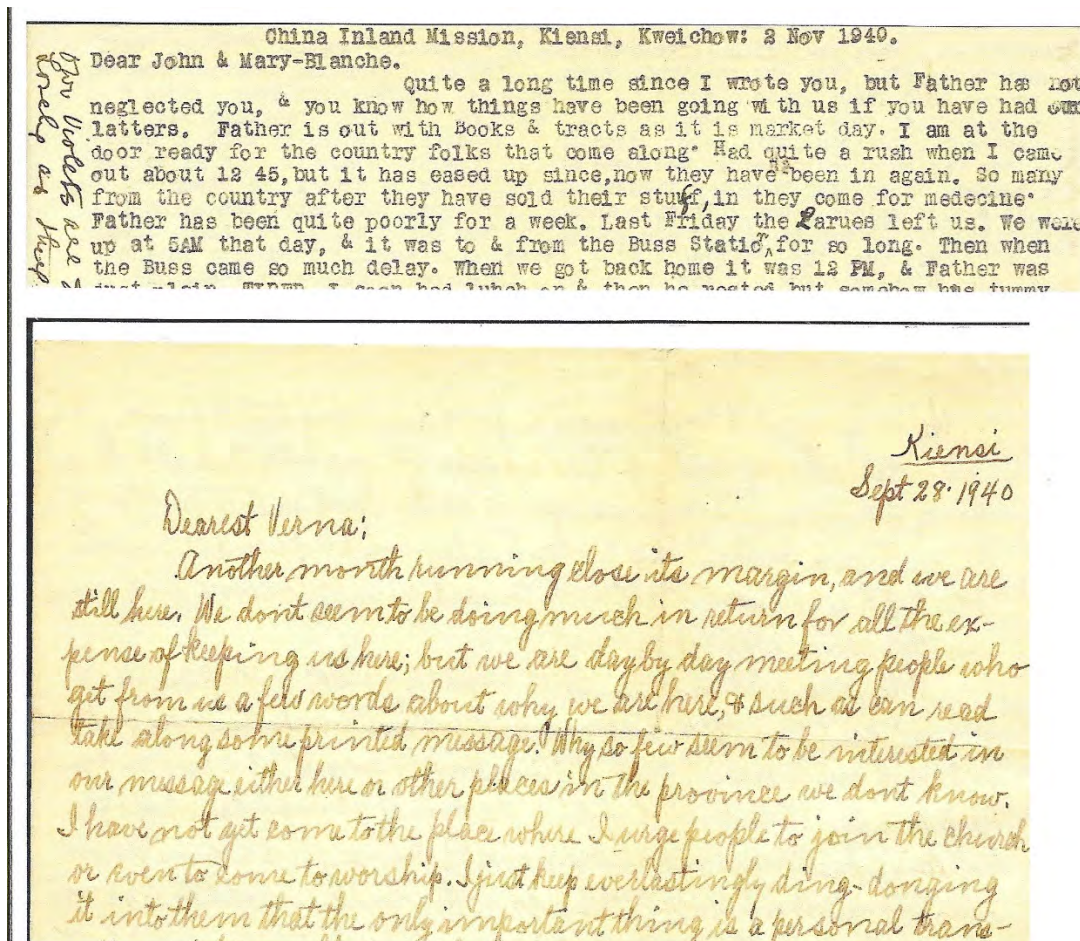 China Inland Mission, Kiensi, Kweichow: 2 Nov 1940.
Dear John & Mary-Blanche.
Quite a long time since I wrote you, but Father has not
neglected you, & you know how things have been going with us if you have had our
latters. Father is out with Books & tracts as it is market day. I am at the
door ready for the country folks that come along. Had quite a rush when I came
out about 12 45, but it has eased up since, now they have been in again. So many
from the country after they have sold their stuff, in they come for medecine.
Father has been quite poorly for a week. Last Friday the Larues left us. We were
up at 5AM that day, & it was to & from the Buss Station, for so long. Then when
the Buss came so much delay. When we got back home it was 12 PM, & Father was
just plain TIRED. I soon had lunch on & then he rested but somehow his tummy
Our Violets are
lovely as they
Kiensi
Sept 28. 1940
Dearest Verna:
Another month running close its margin, and we are
still here. We dont seem to be doing much in return for all the ex-
pense of keeping us here; but we are day by day meeting people who
get from us a few words about why we are here, & such as can read
take along some printed message. Why so few seem to be interested in
our message either here or other places in the province we dont know.
I have not yet come to the place where I urge people to join the church
or even to come to worship. I just keep everlastingly ding-donging
it into them that the only important thing is a personal trans-